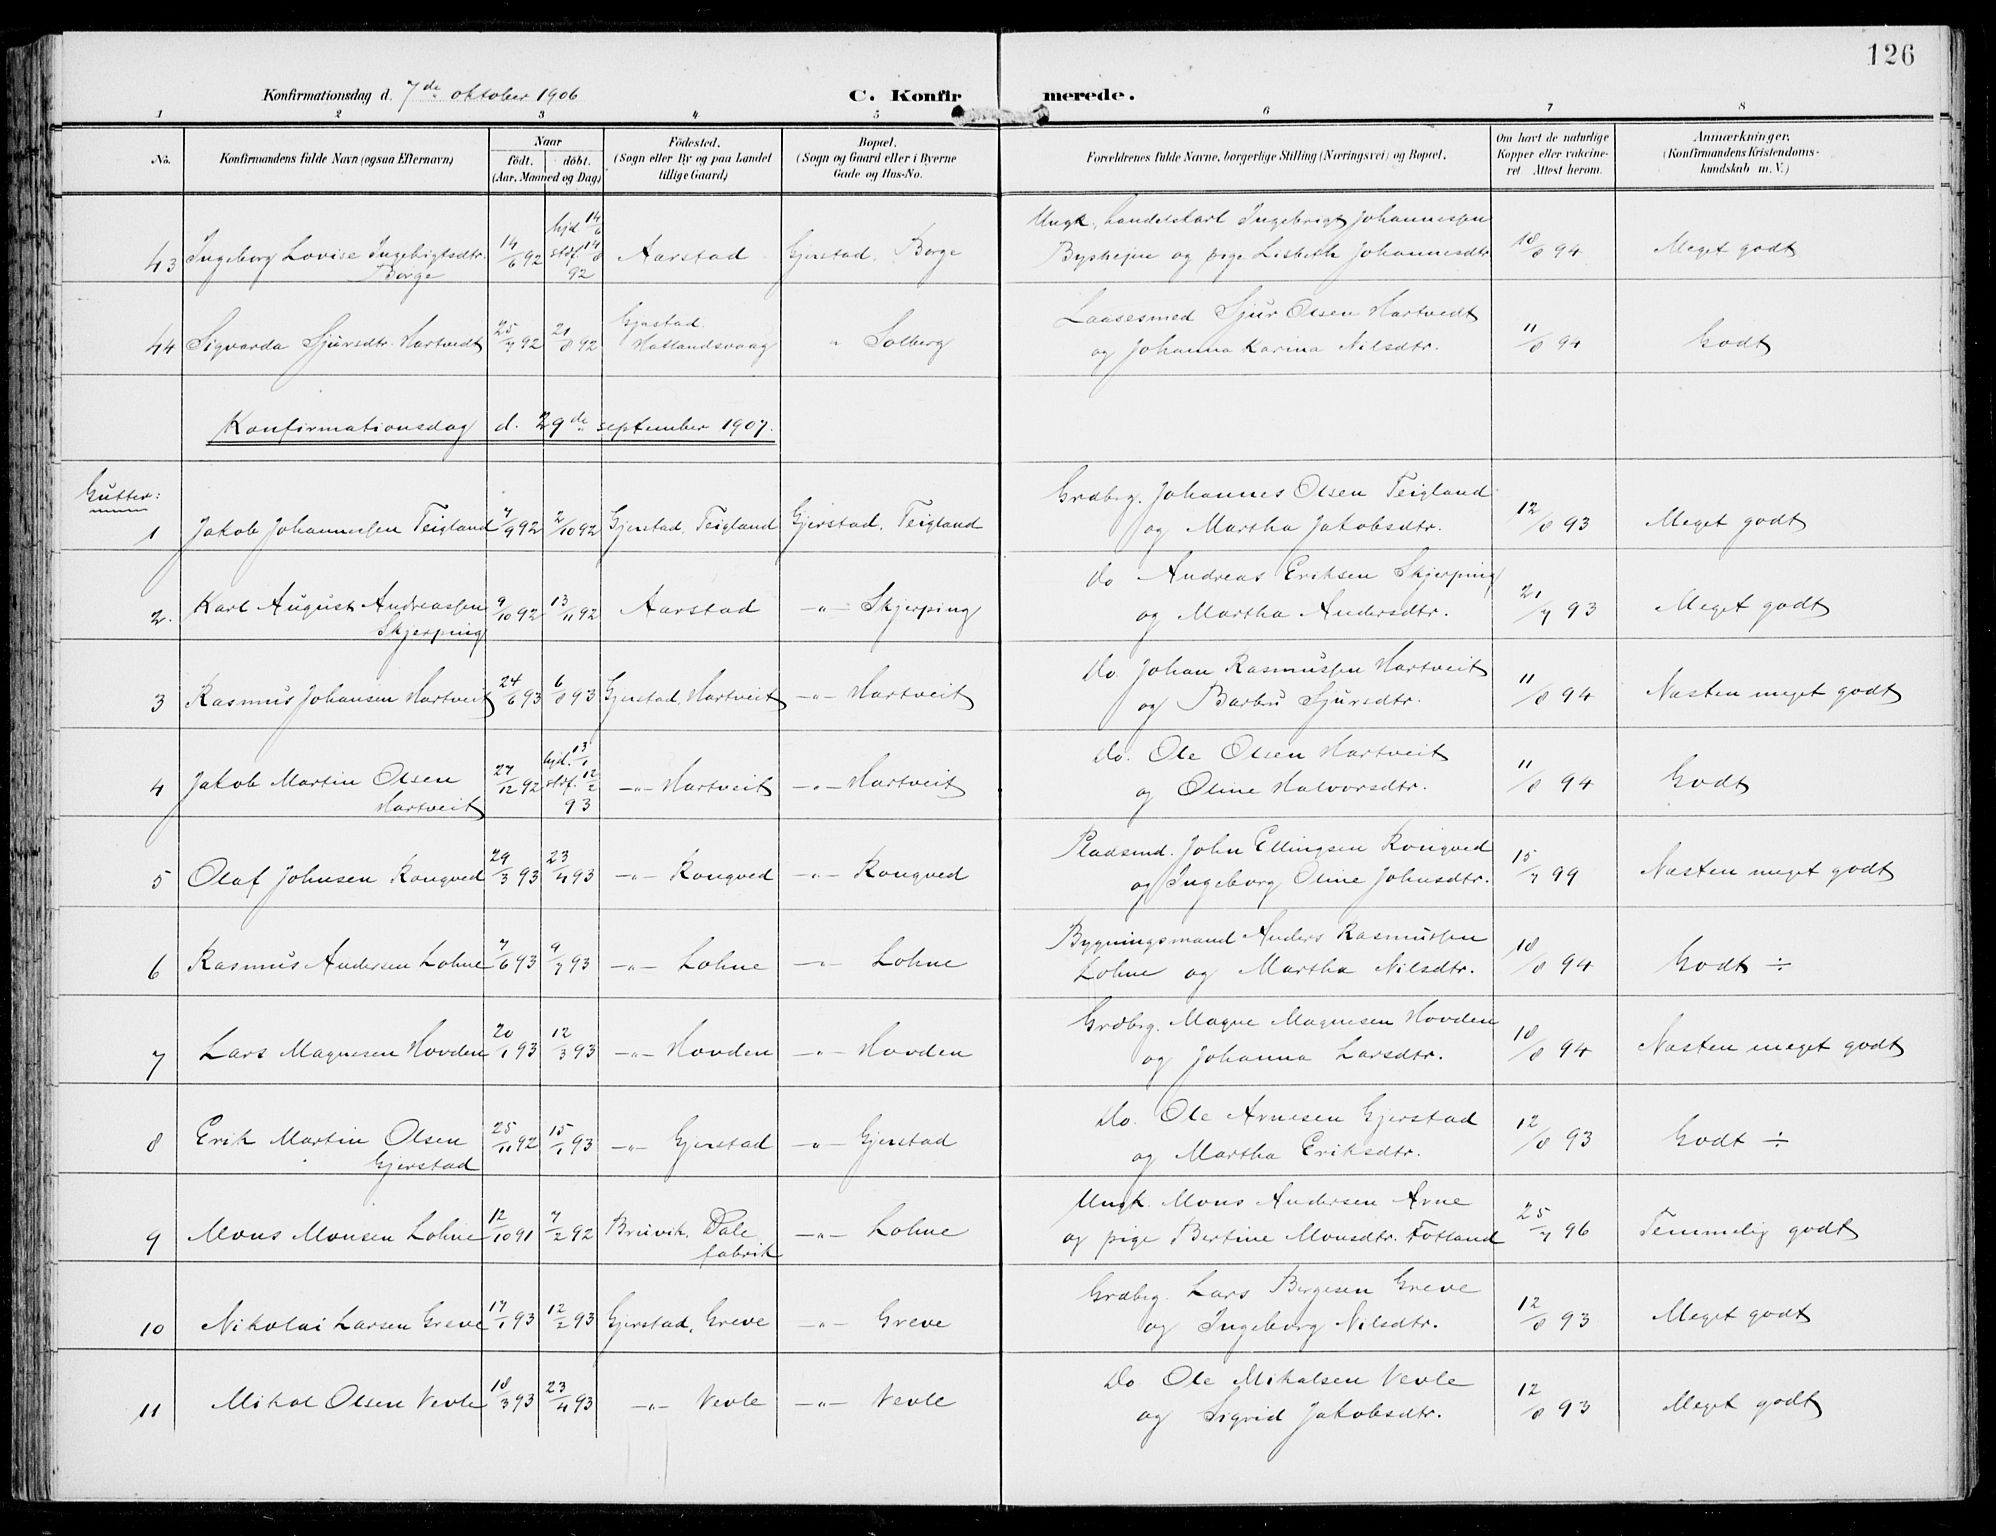 126
Konfirmationsdag d. 7de oktober 1906 C. Konfirmerede.
1 2 3 4 5 6 7 8
No.
Konfirmandens fulde Navn (ogsaa Efternavn)
Naar
födt. döbt.
(Aar, Maaned og Dag)
Födested.
(Sogn eller By og paa Landet
tillige Gaard)
Bopæl.
(Sogn og Gaard eller i Byerne
Gade og Hus-No.
Forældrenes fulde Navne, borgerlige Stilling (Næringsvei) og Bopæl.
Om havt de naturlige
Kopper eller vakcine-
ret. Attest herom.
Anmærkninger.
(Konfirmandens Kristendoms-
kundskab m. V.)
43 Ingeborg Lovise Ingebrigtsdtr. Borge 14/6 92 hjd 14/6 stdf. 14/8 92 Aarstad Gjerstad, Borge Ungk. Ingebrigt Johannessen
og pige Lisbeth Johannesdtr 18/8 94 Meget godt
44 Sigvarda Sjursdtr. Hartvedt 25/7 92 21/8 92 Gjerstad. Hatlandsvaag " Solberg Laasesmed Sjur Olsen Hartvedt
og Johanna Karina Nilsdtr. 11/8 94 Godt
Konfirmationsdag d. 29de september 1907.
Gutter:
1 Jakob Johannessen Teigland 7/9 92 2/10 92 Gjerstad, Teigland Gjerstad, Teigland Grdbrg. Johannes Olsen Teigland
og Martha Jakobsdtr. 12/8 93 Meget godt
2. Karl August Andreassen Skjerping 9/10 92 13/11 92 Aarstad -"- Skjerping Do Andreas Eriksen Skjerping
og Martha Andersdtr. 21/7 93 Meget godt
3 Rasmus Johansen Hartveit 24/6 93 6/8 93 Gjerstad, Hartveit -"- Hartveit Do. Johan Rasmussen Hartveit
og Barbru Sjursdtr. 11/8 94 Næsten meget godt
4 Jakob Martin Olsen Hartveit 27/12 92 hjd. 13/1 stdf. 12/2 93 -"- Hartveit -"- Hartveit Do. Ole Olsen Hartveit
og Oline Halvorsdtr. 11/8 94 Godt
5 Olaf Johnsen Rongved 29/3 93 23/4 93 -"- Rongved -"- Rongved Pladsmd. John Ellingsen Rongved
og Ingeborg Oline Johnsdtr. 15/7 99 Næsten meget godt
6 Rasmus Andersen Lohne 7/6 93 9/7 93 -"- Lohne -"- Lohne Bygningsmand Anders Rasmussen
Lohne og Martha Nilsdtr. 18/8 94 Godt ÷
7 Lars Magnesen Hovden 20/1 93 12/3 93 -"- Hovden -"- Hovden Grdbrg. Magne Magnesen Hovden
og Johanna Larsdtr. 18/8 94 Næsten meget godt
8 Erik Martin Olsen Gjerstad 25/11 92 15/1 93 -"- Gjerstad -"- Gjerstad Do. Ole Arnesen Gjerstad
og Martha Eriksdtr. 12/8 93 Godt ÷
9 Mons Monsen Lohne 12/10 91 7/2 92 Bruvik, Dale fabrik -"- Lohne Ungk. Mons Andersen Arne
og pige Bertine Monsdtr. Fotland 25/7 96 Temmelig godt
10 Nikolai Larsen Greve 17/1 93 12/2 93 Gjerstad, Greve -"- Greve Grdbrg. Lars Børgesen Greve
og Ingeborg Nilsdtr. 12/8 93 Meget godt
11 Mikal Olsen Vevle 18/3 93 23/4 93 -"- Vevle -"- Vevle Do Ole Mikalsen Vevle
og Sigrid Jakobsdtr. 12/8 93 Meget godt